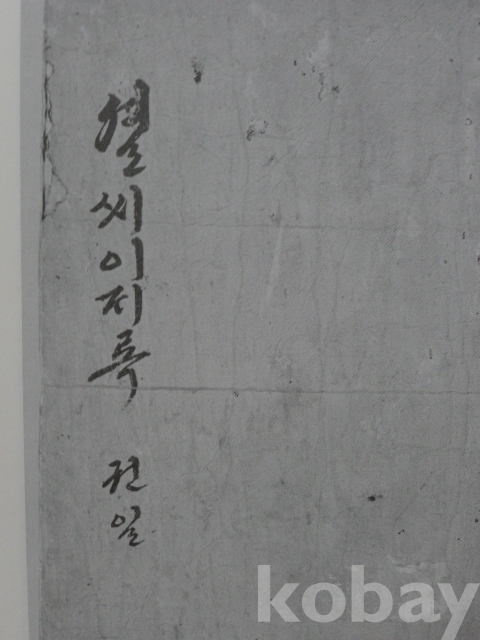 셜씨이지록 권일
kobay